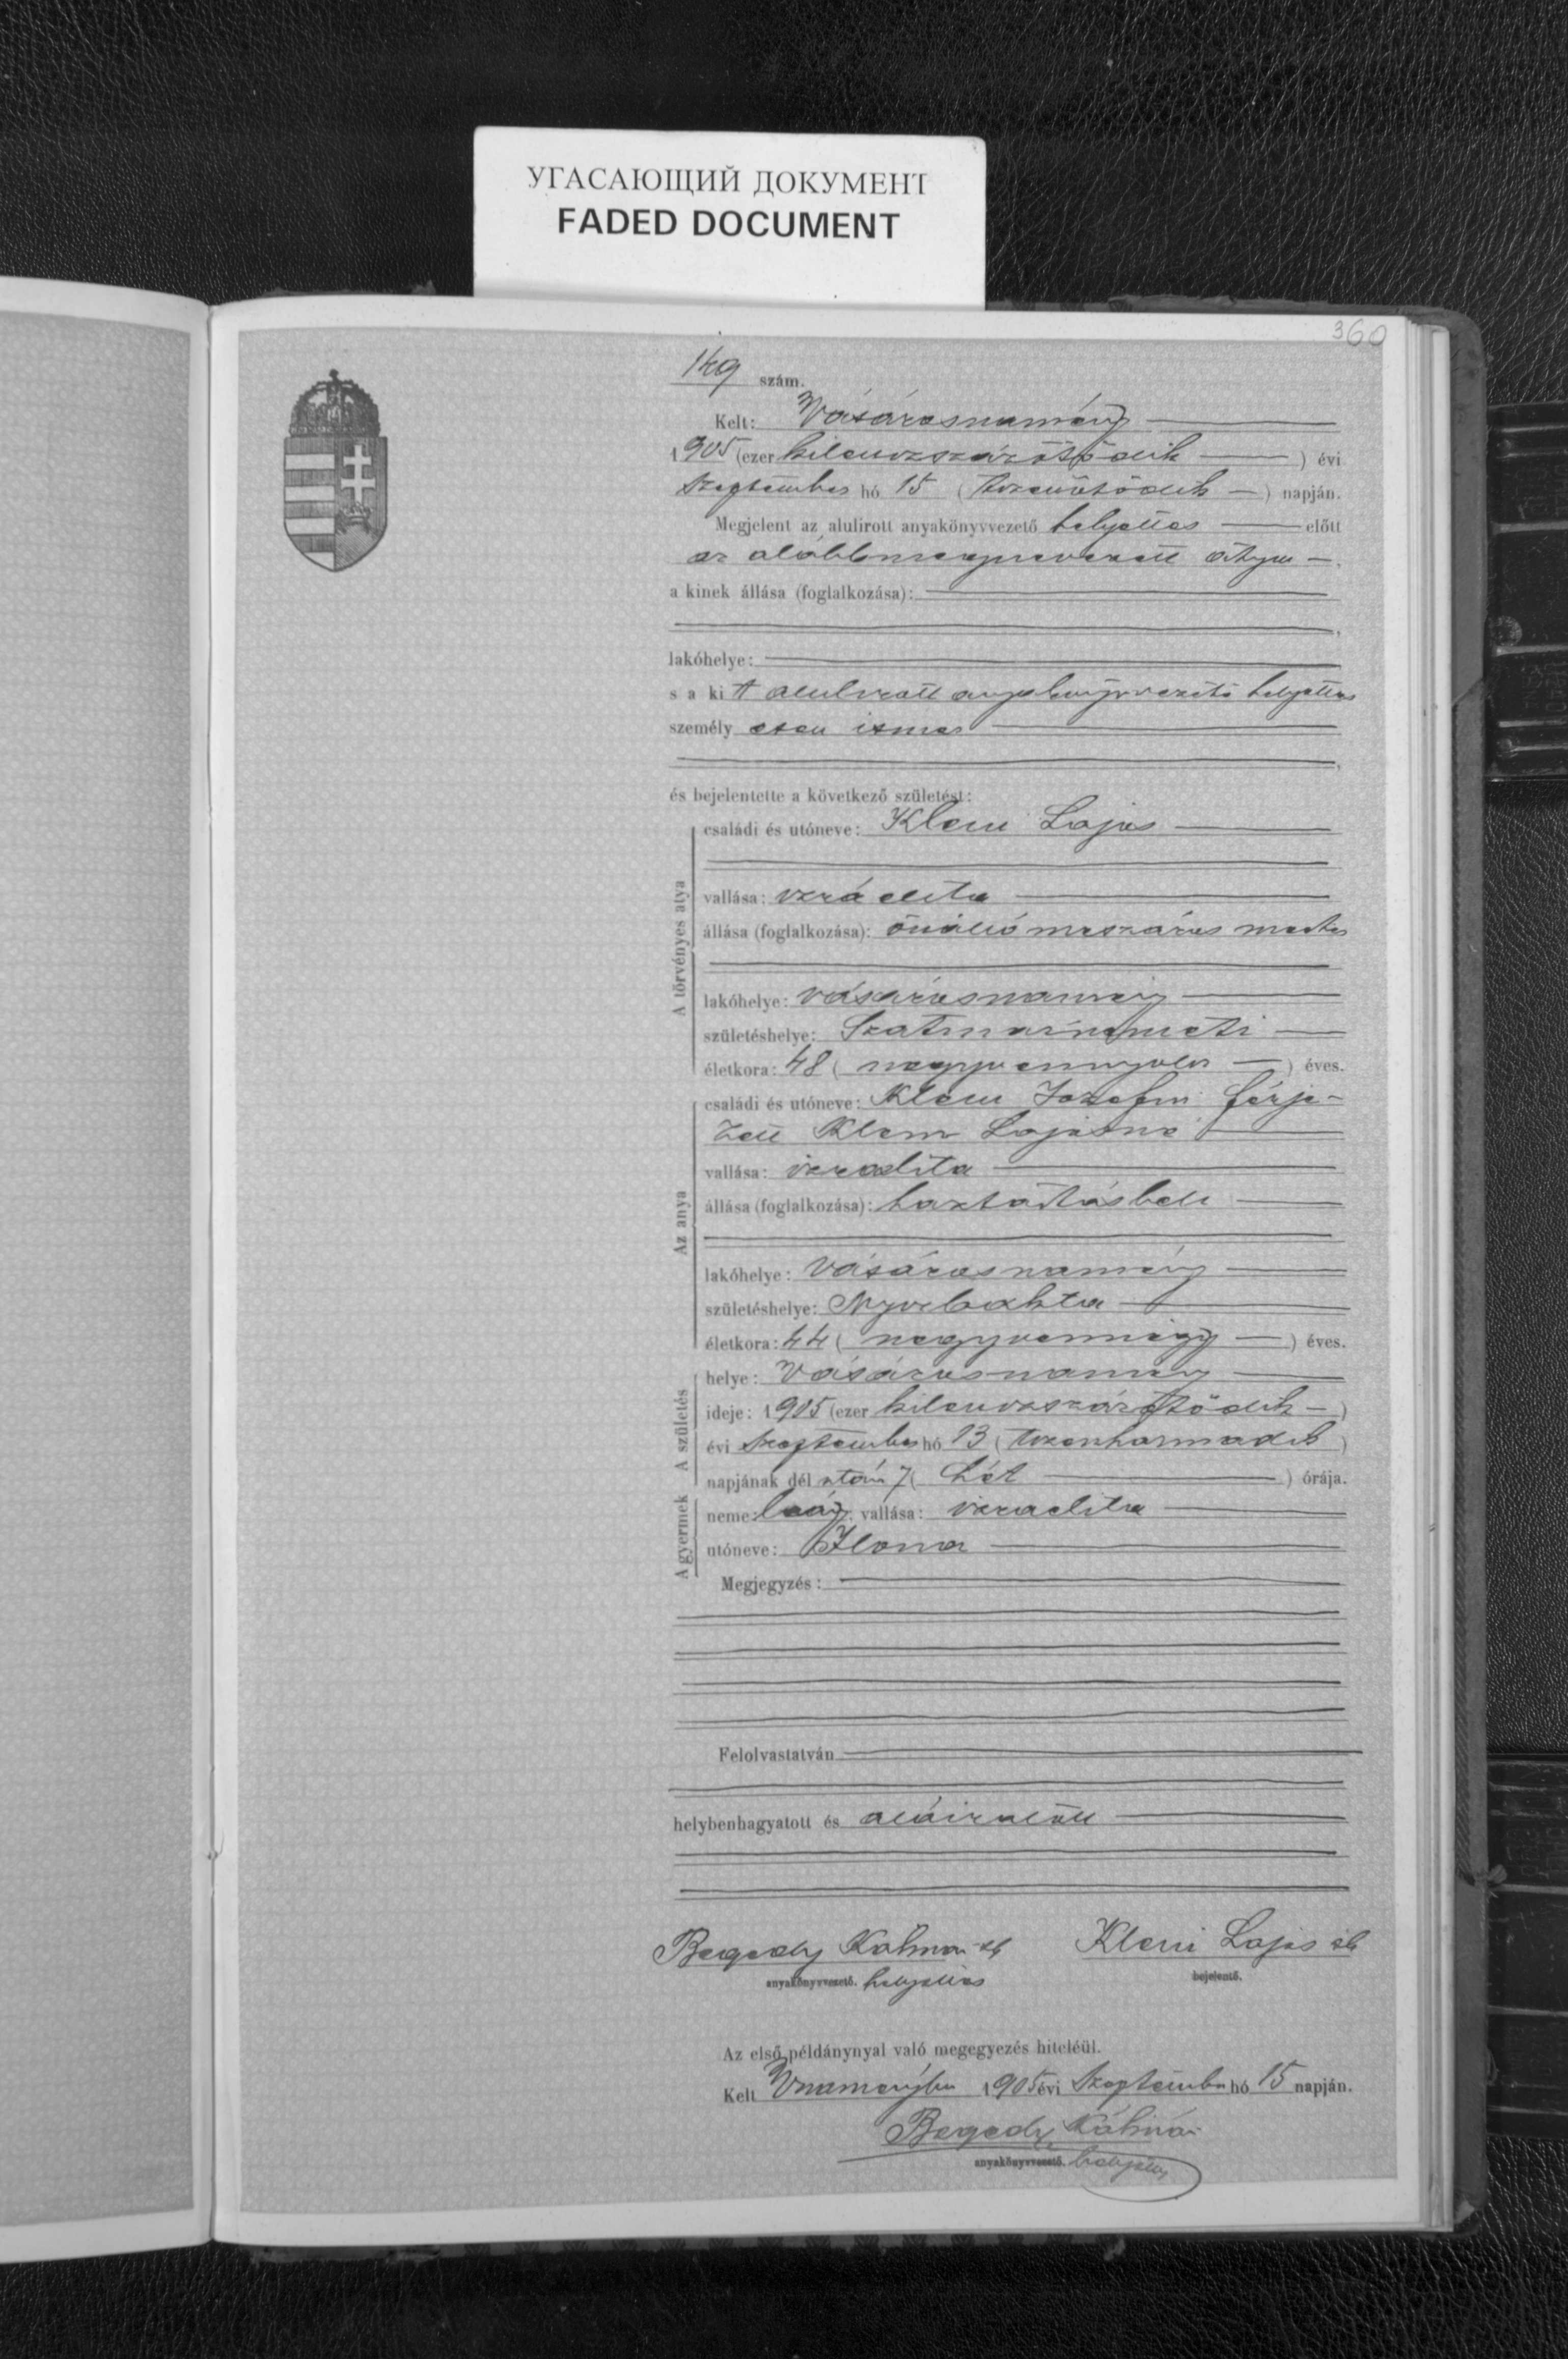 УГАСАЮЩИЙ ДОКУМЕНТ
FADED DOCUMENT
360
149 szám.
Kelt: Vásárosnamény
1905 (ezer kilenczszázötödik) évi
Szeptember hó 15 (tizenötödik) napján.
Megjelent az alulirott anyakönyvvezető helyettes előtt
az alább megnevezett atya
a kinek állása (foglalkozása):
lakóhelye:
s a kit alulirott anyakönyvvezető helyettes
személy esen ismer
és bejelentette a következő születést:
A törvényes atya
családi és utóneve: Klein Lajos
vallása: izraelita
állása (foglalkozása): önálló mészáros mester
lakóhelye: vásárosnamény
születéshelye: Szatmárnémeti
életkora: 48 (negyvennyolcz) éves.
Az anya
családi és utóneve: Klein Jozefin férje-
zett Klein Lajosné
vallása: izraelita
állása (foglalkozása): haztartásbeli
lakóhelye: Vásárosnamény
születéshelye: Nyirbakta
életkora: 44 (negyvennégy) éves.
A születés
helye: Vásárosnamény
ideje: 1905 (ezer kilenczszázötödik)
évi Szeptember hó 13 (tizenharmadik)
napjának dél után 7 (hét) órája.
A gyermek
neme: leány. vallása: izraelita
utóneve: Ilona
Megjegyzés:
Felolvastatván
helybenhagyatott és aláiratott
Begedy Kálmán sk Klein Lajos sk
anyakönyvvezető. helyettes bejelentő.
Az első példánynyal való megegyezés hiteléül.
Kelt Vnaményben 1905 évi Szeptember hó 15 napján.
Begedy Kálmán
anyakönyvvezető. helyettes